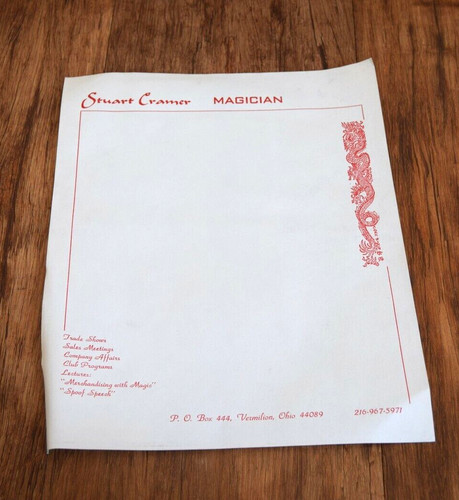 Stuart Cramer MAGICIAN
Trade Shows
Sales Meetings
Company Affairs
Club Programs
Lectures:
"Merchandising with Magic"
"Spoof Speech"
P. O. Box 444, Vermilion, Ohio 44089 216-967-5971